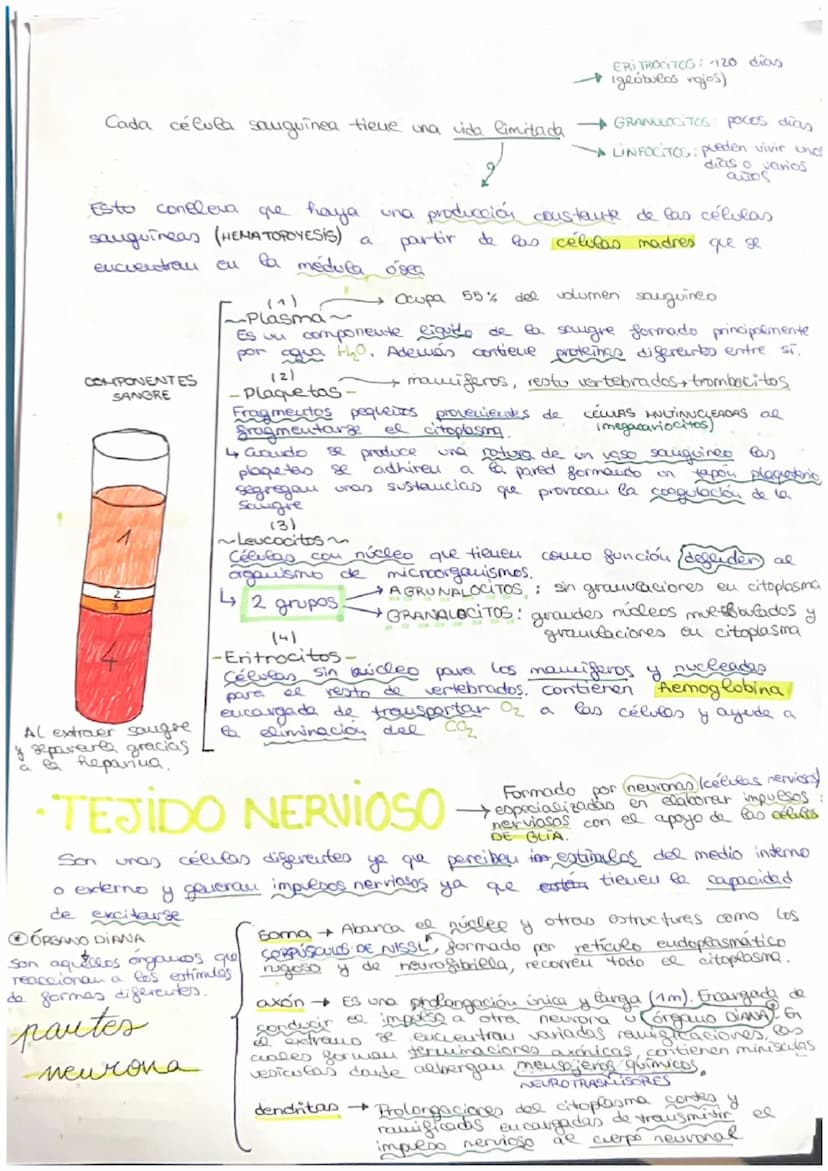 ERITROCITOS: 120 días
(glóbulos rojos)
Cada célula sanguínea tiene una vida limitada
GRANULOCITOS: pocos días
LINFOCITOS: pueden vivir unos
días o varios
años
Esto conlleva que haya una producción constante de las células
sanguíneas (HEMATOPOYESIS) a partir de las células madres que se
encuentran en la médula ósea
COMPONENTES
SANGRE
1
2
3
4
Al extraer sangre
y separarla gracias
a la heparina.
(1)
Ocupa 55% del volumen sanguíneo
~Plasma~
Es un componente líquido de la sangre formado principalmente
por agua H2O. Además contiene proteínas diferentes entre sí.
(2)
-Plaquetas-
mamíferos, resto vertebrados→trombocitos
Fragmentos pequeños provenientes de CÉLULAS MULTINUCLEADAS al
(megacariocitos)
fragmentarse el citoplasma.
↳ Cuando se produce una rotura de un vaso sanguíneo las
plaquetas se adhieren a la pared formando un tapón plaquetario
segregan unas sustancias que provocan la coagulación de la
sangre
(3)
~Leucocitos~
Células con núcleo que tienen como función defender al
organismo de microorganismos.
↳ 2 grupos
AGRUNALOCITOS: sin granulaciones en citoplasma
GRANALOCITOS: grandes núcleos multilobulados y
granulaciones en citoplasma
(4)
-Eritrocitos-
Células sin núcleo para los mamíferos y nucleadas
para el resto de vertebrados. Contienen Hemoglobina
encargada de transportar O2 a las células y ayuda a
la eliminación del CO2
·TEJIDO NERVIOSO
Formado por neuronas (células nerviosas)
especializadas en elaborar impulsos
nerviosos con el apoyo de las células
DE GLÍA.
Son unas células diferentes ya que perciben los estímulos del medio interno
o externo y generan impulsos nerviosos ya que están tienen la capacidad
de excitarse
* ÓRGANO DIANA
Son aquellos órganos que
reaccionan a los estímulos
de formas diferentes.
partes
neurona
soma → Abarca el núcleo y otras estructuras como los
CORPÚSCULOS DE NISSL, formado por retículo endoplasmático
rugoso y de neurofibrilla, recorren todo el citoplasma.
axón → Es una prolongación única y larga (1m). Encargada de
conducir el impulso a otra neurona u órgano DIANA*. En
el extremo se encuentran variadas ramificaciones, las
cuales forman terminaciones axónicas, contienen minísculas
vesículas donde albergan mensajeros químicos.
NEUROTRASMISORES
dendritas → Prolongaciones del citoplasma cortas y
ramificadas encargadas de transmitir el
impulso nervioso al cuerpo neuronal